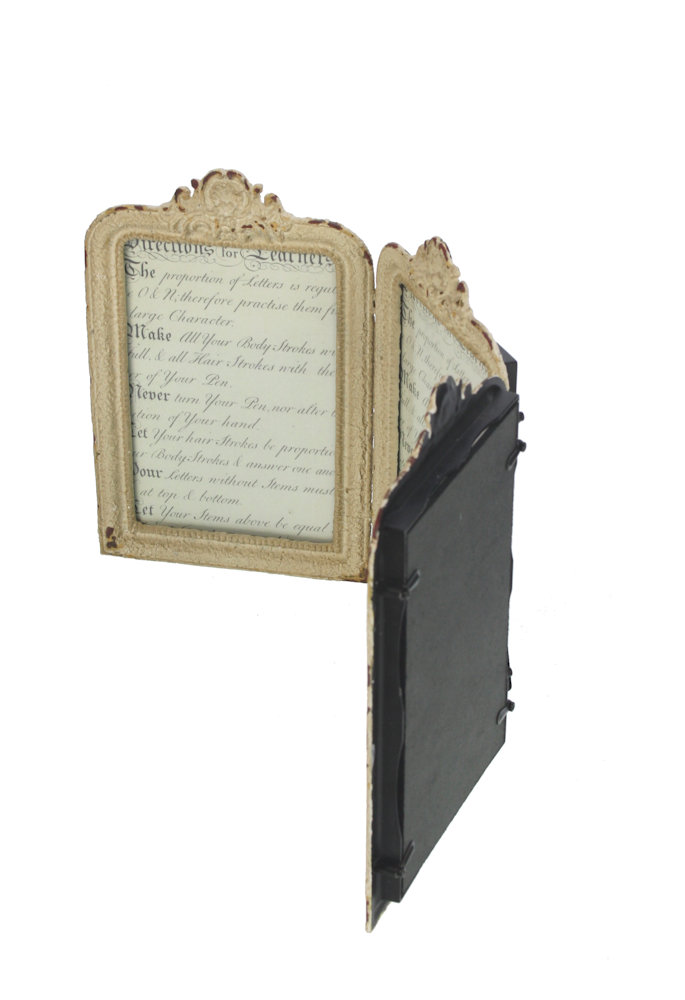 Directions for Learners
The proportion of Letters is regul
e O & N; therefore practise them fi
large Character.
Make All Your Body Strokes wi
full, & all Hair Strokes with the
er of Your Pen.
Never turn Your Pen, nor alter t
ition of Your hand.
Let Your hair Strokes be proportio
ur Body Strokes & answer one ano
Your Letters without Stems must
at top & bottom.
Let Your Stems above be equal
The
proportion of Lett
N; therefore
large Character
Make